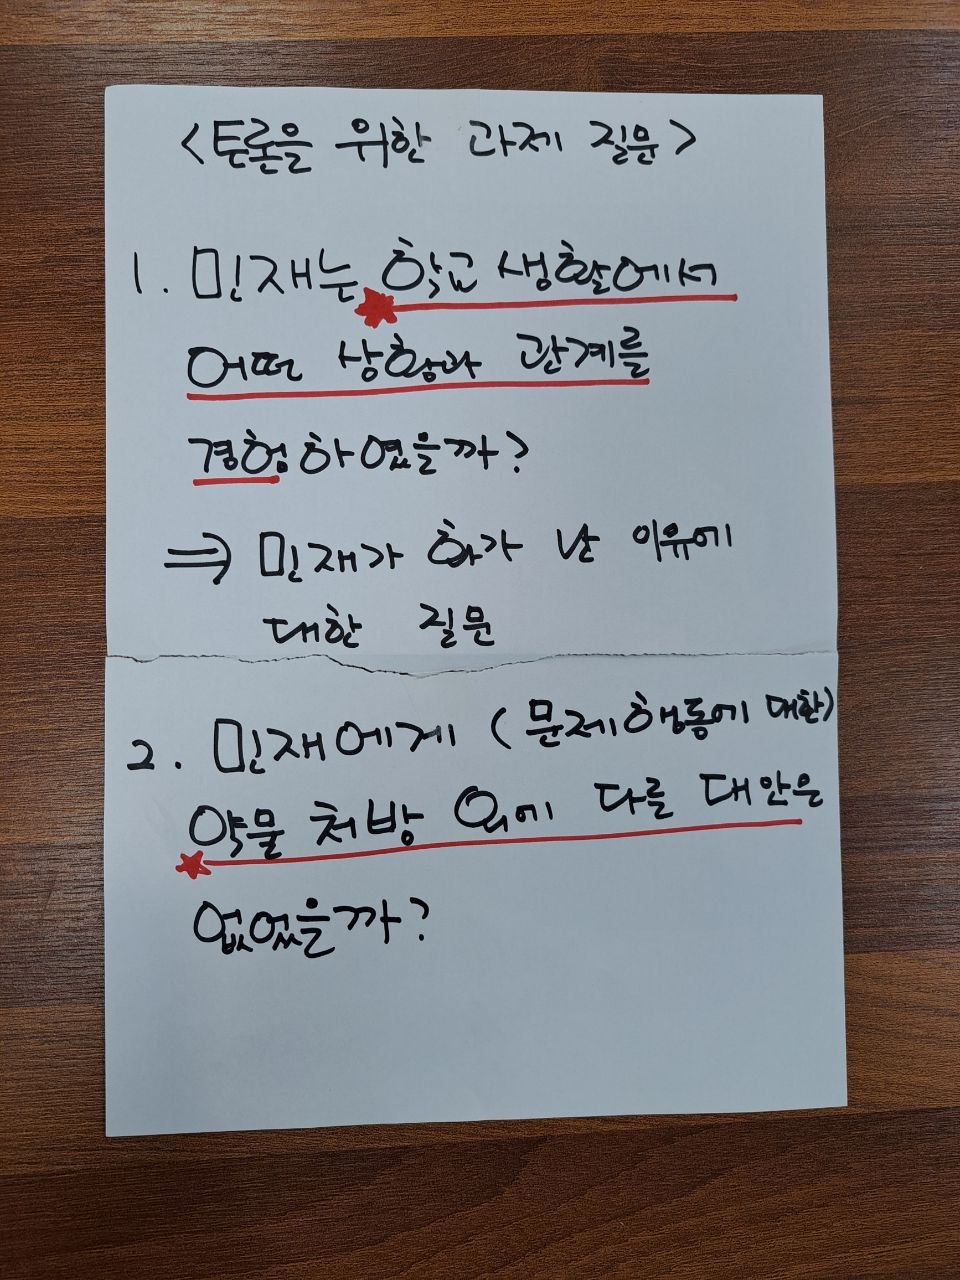 <토론을 위한 과제 질문>
1. 민재는 학교 생활에서
어떤 상황과 관계를
경험하였을까?
⇒ 민재가 화가 난 이유에
대한 질문
2. 민재에게 (문제행동에 대한)
약물 처방 외에 다를 대안은
없었을까?